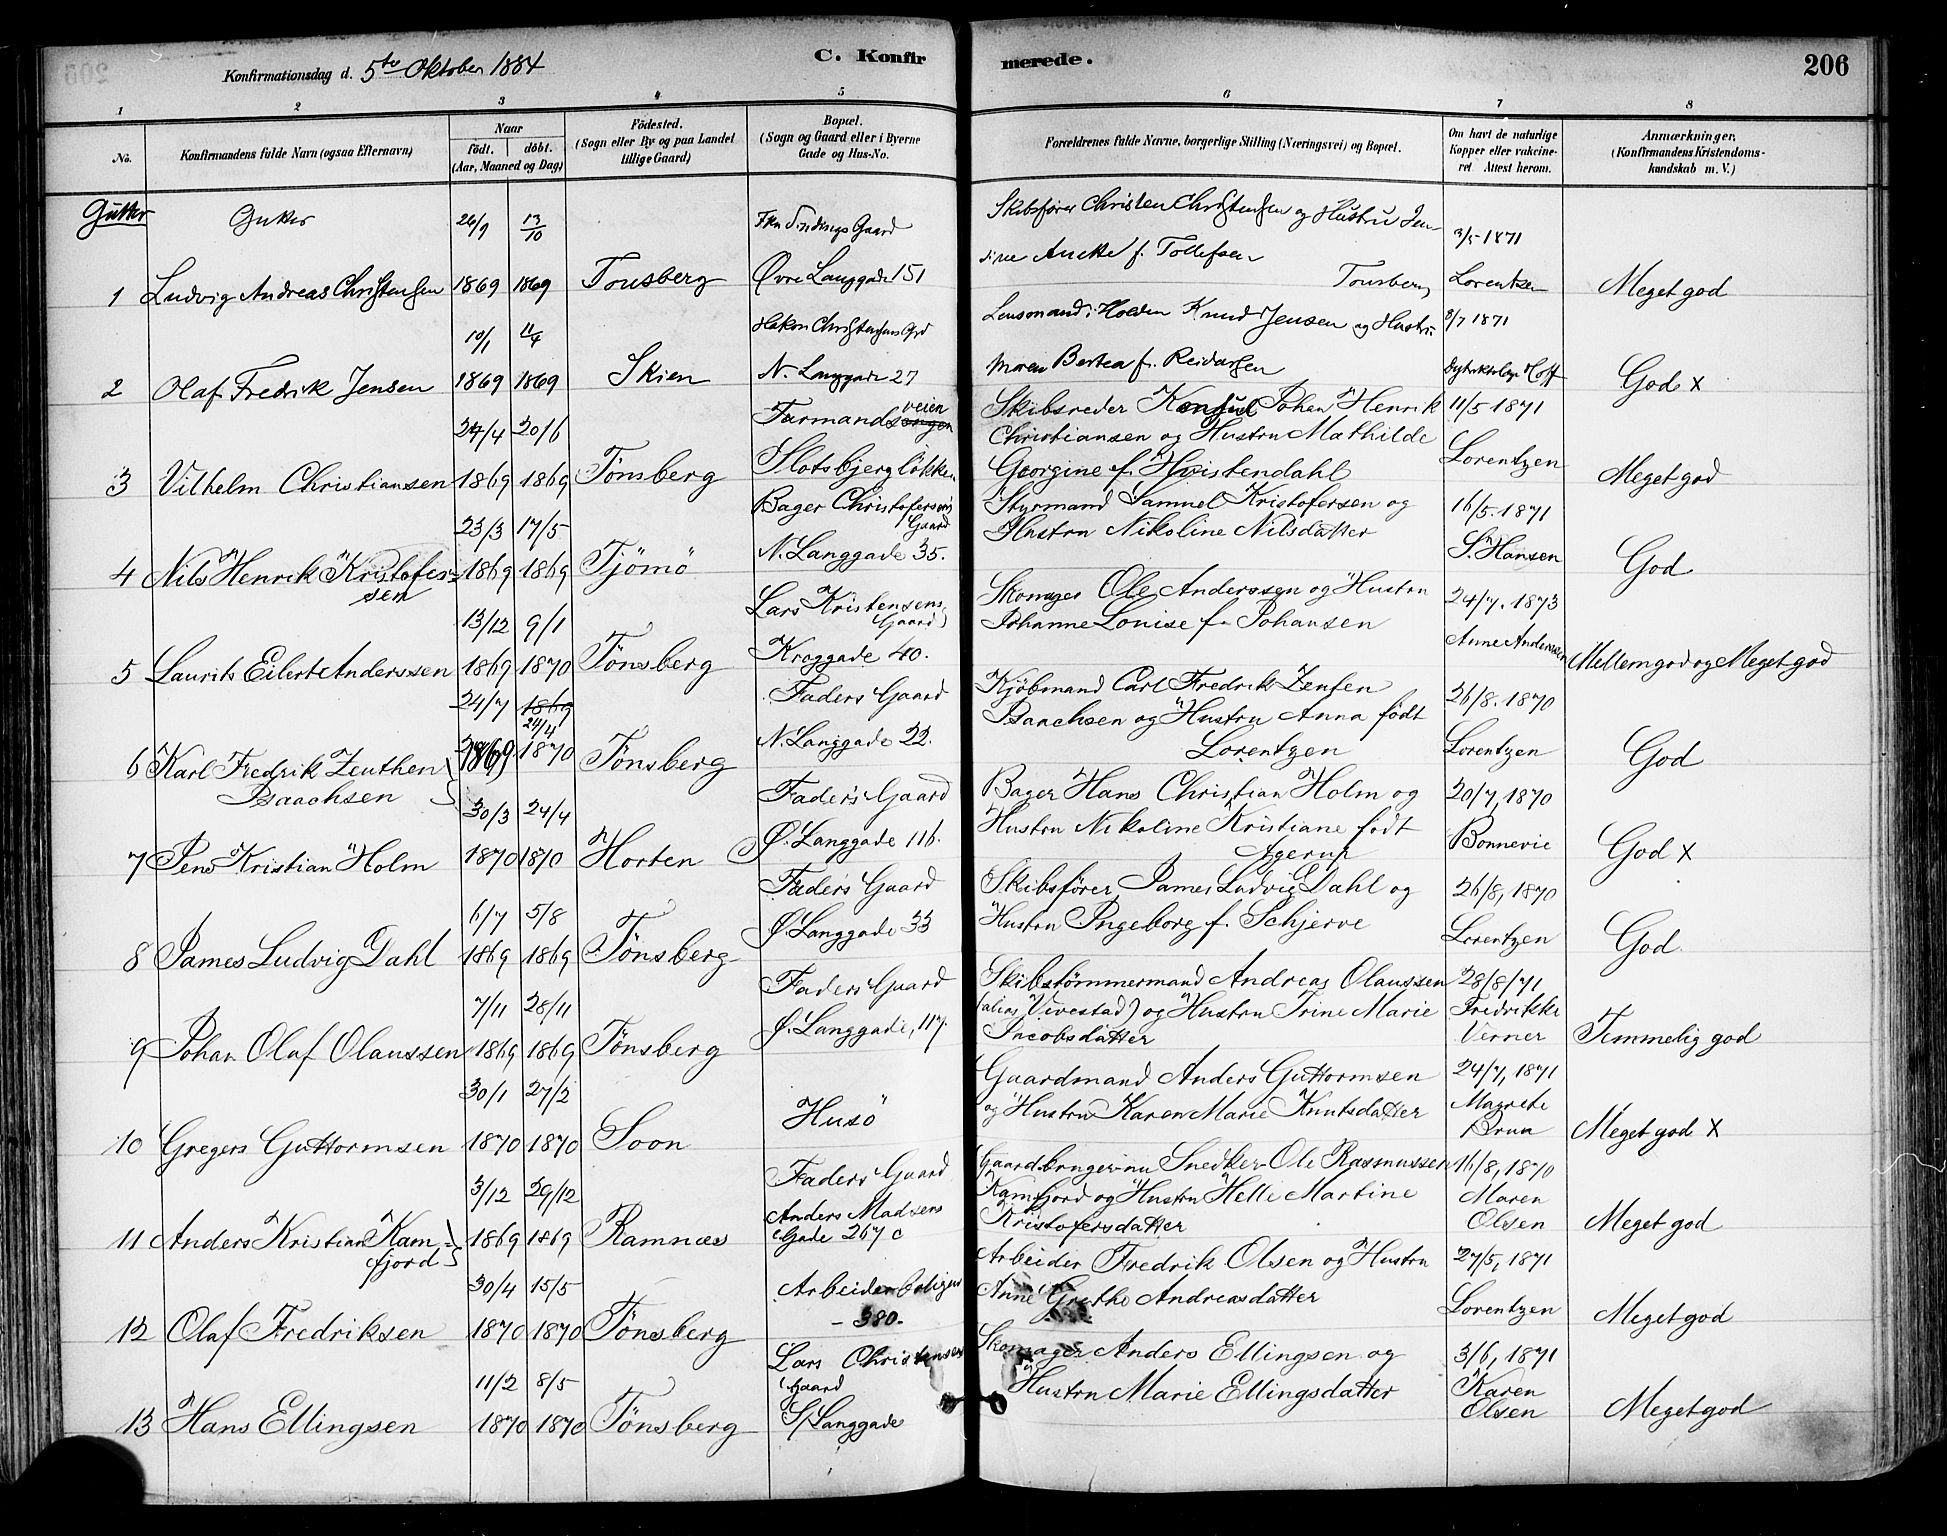 Konfirmationsdag d. 5te Oktober 1884
C. Konfirmerede.
206
1 2 3 4 5 6 7 8
No.
Konfirmandens fulde Navn (ogsaa Efternavn)
Naar
födt. döbt.
(Aar, Maaned og Dag)
Födested.
(Sogn eller By og paa Landet
tillige Gaard)
Bopæl.
(Sogn og Gaard eller i Byerne
Gade og Hus-No.
Forældrenes fulde Navne, borgerlige Stilling (Næringsvei) og Bopæl.
Om havt de naturlige
Kopper eller vakcine-
ret Attest herom.
Anmærkninger.
(Konfirmandens Kristendoms-
kundskab m. V.)
Gutter
Gutter
1 Ludvig Andreas Christensen
26/9 1869
13/10 1869
Tønsberg
Gaard
Øvre Langgade 151
Skibsfører Christen Christensen og Hustru Jen-
sine Anette f. Tollefsen
Tønsberg
3/5 1871
Lorentzen
Meget god
2 Olaf Fredrik Jensen
10/1 1869
11/4 1869
Skien
Hakon Christensens Grd
N. Langgade 27
Lensmand i Holden Knud Jensen og Hustru
Maren Bertea f. Reidarsen
8/7 1871
Distriktslæge Hoff
God x
3 Vilhelm Christiansen
27/4 1869
20/6 1869
Tönsberg
Farmandsveien
Slotsbjerglökken
Skibsreder Konsul Johan Henrik
Christiansen og Hustru Mathilde
Georgine f. Hvistendahl
11/5 1871
Lorentzen
Meget god
4 Nils Henrik Kristofer-
sen
23/3 1869
17/5 1869
Tjömö
Bager Christofersens
Gaard
N. Langgade 35.
Styrmand Samuel Kristofersen og
Hustru Nikoline Nilsdatter
16/5. 1871
S. Hansen
God
5 Laurits Eilert Anderssen
13/12 1869
9/1 1870
Tönsberg
Lars Kristensens
Gaard
Kroggade 40.
Skomager Ole Anderssen og Hustru
Johanne Louise f. Johansen
24/7. 1873
Anne Anderssen
Mellemgod og Meget god
6 Karl Fredrik Zeuthen
Isaachsen
24/7 1869
1869
24/4 1870
Tönsberg
Faders Gaard
N. Langgade 22.
Kjöbmand Carl Fredrik Zeuten
Isaachsen og Hustru Anna födt
Lorentzen
26/8. 1870
Lorentzen
God
7 Jens Kristian Holm
30/3 1870
24/4 1870
Horten
Faders Gaard
Ø. Langgade 116.
Bager Hans Christian Holm og
Hustru Nikoline Kristiane födt
Agerup
20/7, 1870
Bonnevie
God x
8 James Ludvig Dahl
6/7 1869
5/8 1869
Tönsberg
Faders Gaard
Ø. Langgade 33
Skibsförer James Ludvig Dahl og
Hustru Ingeborg f. Schjerve
26/8, 1870
Lorentzen
God.
9 Johan Olaf Olaussen
7/11 1869
28/11 1869
Tönsberg
Faders Gaard
Ø. Langgade, 117.
Skibstömmermand Andreas Olaussen
(alias Vivestad) og Hustru Trine Marie
Jacobsdatter
28/8/71
Fredrikke
Verner
Temmelig god
10 Gregers Guttormsen
30/1 1870
27/2 1870
Soon
Husö
Gaardmand Anders Guttormsen
og Hustru Karen Marie Knutsdatter
24/7, 1871
Magrete
Bruu
Meget god x
11 Anders Kristian Kam-
fjord
3/12 1869
29/12 1869
Ramnæs
Faders Gaard
Anders Madsens
Gade 267 c
Gaardbruger nu Snedker Ole Rasmussen
Kamfjord og Hustru Helle Martine
Kristofersdatter
16/8, 1870
Maren
Olsen
Meget god
12 Olaf Fredriksen
30/4 1870
15/5 1870
Tönsberg
Arbeiderboliger
- 380.
Arbeider Fredrik Olsen og Hustru
Anne Grethe Andreasdatter
27/5, 1871
Lorentzen
Meget god
13 Hans Ellingsen
11/2 1870
8/5 1870
Tönsberg
Lars Christensens
Gaard
S. Langgade
Skomager Anders Ellingsen og
Hustru Marie Ellingsdatter
3/6, 1871
Karen
Olsen
Meget god